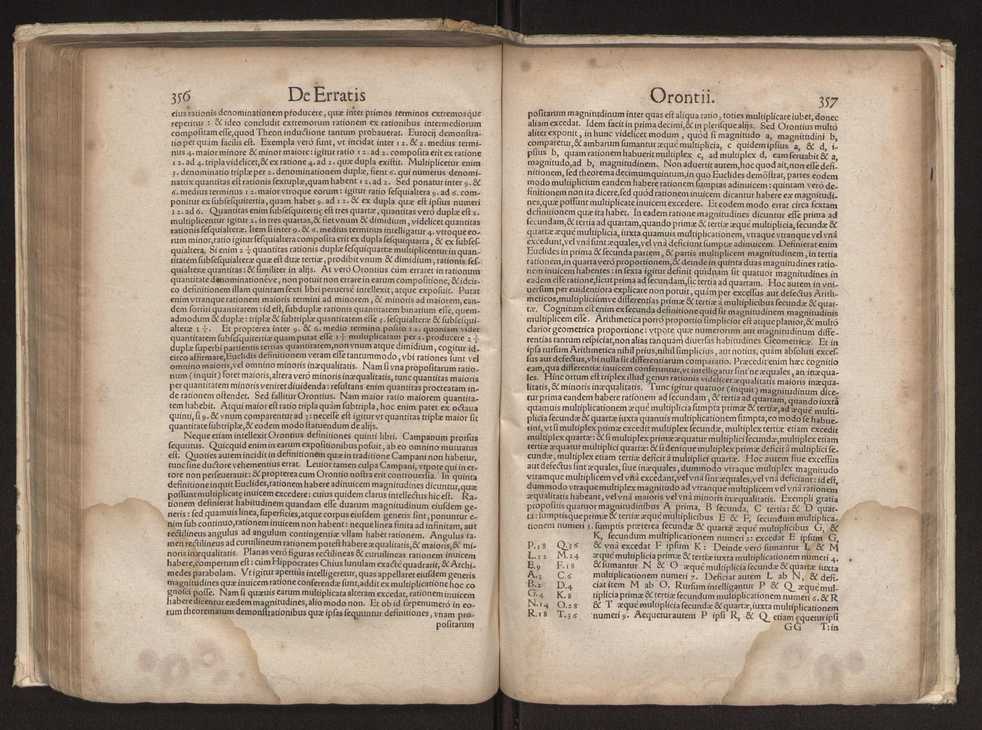 356 De Erratis
eius rationis denominationem producere, quæ inter primos terminos extremosque
reperitur: & ideo concludit extremorum rationem ex rationibus intermediorum
compositam esse, quod Theon inductione tantum probauerat. Eutocij demonstra-
tio per quàm facilis est. Exempla verò sunt, vt incidat inter 12. & 2. medius termi-
nus 4. maior minore & minor maiore: igitur ratio 12. ad 2. composita erit ex ratione
12. ad 4. tripla videlicet, & ex ratione 4. ad 2. quæ dupla existit. Multiplicetur enim
3. denominatio triplæ per 2. denominationem duplæ, fient 6. qui numerus denomi-
natrix quantitas est rationis sextuplæ, quam habent 12. ad 2. Sed ponatur inter 9. &
6. medius terminus 12. maior vtroque eorum: igitur ratio sesquialtera 9. ad 6. com-
ponitur ex subsesquitertia, quam habet 9. ad 12. & ex dupla quæ est ipsius numeri
12. ad 6. Quantitas enim subsesquitertiæ est tres quartæ, quantitas verò duplæ est 2.
multiplicentur igitur 2. in tres quartas, & fiet vnum & dimidium, videlicet quantitas
rationis sesquialteræ. Item si inter 9. & 6. medius terminus intelligatur 4. vtroque eo-
rum minor, ratio igitur sesquialtera composita erit ex dupla sesquiquarta, & ex subses-
quialtera. Si enim 2 ¼ quantitas rationis duplæ sesquiquartæ multiplicentur in quan-
titatem subsesquialteræ quæ est duæ tertiæ, prodibit vnum & dimidium, rationis ses-
quialteræ quantitas: & similiter in alijs. At verò Orontius cùm erraret in rationum
quantitate denominationéve, non potuit non errare in earum compositione, & idcir-
co definitionem illam quintam sexti libri peruersè intellexit, atque exposuit. Putat
enim vtranque rationem maioris termini ad minorem, & minoris ad maiorem, ean-
dem sortiri quantitatem: id est, subduplæ rationis quantitatem binarium esse, quem-
admodum & duplæ: triplæ & subtriplæ quantitatem esse 3. sesquialteræ & subsesqui-
alteræ 1 ½. Et propterea inter 9. & 6. medio termino posito 12. quoniam videt
quantitatem subsesquitertiæ quam putat esse 1 ⅓ multiplicatam per 2. producere 2 ⅔
duplæ superbi partientis tertias quantitatem, non vnum atque dimidium, cogitur id-
circo affirmare, Euclidis definitionem veram esse tantummodo, vbi rationes sunt vel
omnino maioris, vel omnino minoris inæqualitatis. Nam si vna propositarum ratio-
num (inquit) foret maioris, altera verò minoris inæqualitatis, tunc quantitas maioris
per quantitatem minoris veniret diuidenda: resultans enim quantitas procreatam in-
de rationem ostendet. Sed fallitur Orontius. Nam maior ratio maiorem quantita-
tem habebit. Atqui maior est ratio tripla quàm subtripla, hoc enim patet ex octaua
quinti, si 9. & vnum comparentur ad 3: necesse est igitur vt quantitas triplæ maior sit
quantitate subtriplæ, & eodem modo statuendum de alijs.
Neque etiam intellexit Orontius definitiones quinti libri. Campanum prorsus
sequutus. Quicquid enim in earum expositionibus posuit, ab eo omnino mutuatus
est. Quoties autem incidit in definitionem quæ in traditione Campani non habetur,
tunc sine ductore vehementius errat. Leuior tamen culpa Campani, vtpote qui in er-
rore non perseuerauit: & propterea cum Orontio nostra erit controuersia. In quinta
definitione inquit Euclides, rationem habere adinuicem magnitudines dicuntur, quæ
possunt multiplicatæ inuicem excedere: cuius quidem clarus intellectus hic est. Ra-
tionem definierat habitudinem quandam esse duarum magnitudinum eiusdem ge-
neris: sed quamuis linea, superficies, atque corpus eiusdem generis sint, ponuntur e-
nim sub continuo, rationem inuicem non habent: neque linea finita ad infinitam, aut
rectilineus angulus ad angulum contingentiæ vllam habet rationem. Angulus ta-
men rectilineus ad curuilineum rationem potest habere æqualitatis, & maioris, & mi-
noris inæqualitatis. Planas verò figuras rectilineas & curuilineas rationem inuicem
habere, compertum est: cùm Hippocrates Chius lunulam exactè quadrarit, & Archi-
medes parabolam. Vt igitur apertius intelligeretur, quas appellaret eiusdem generis
magnitudines quæ inuicem ratione conferendæ sunt, addit ex multiplicatione hoc co
gnosci posse. Nam si quæuis earum multiplicata alteram excedat, rationem inuicem
habere dicentur eædem magnitudines, alio modo non. Et ob id sæpenumerò in eo-
rum theorematum demonstrationibus quæ ipsas sequuntur definitiones, vnam pro-
positarum
Orontii. 357
positarum magnitudinum inter quas est aliqua ratio, toties multiplicare iubet, donec
aliam excedat. Idem facit in prima decimi, & in plerisque alijs. Sed Orontius multò
aliter exponit, in hunc videlicet modum, quòd si magnitudo a, magnitudini b,
comparetur, & ambarum sumantur æquè multiplicia, c quidem ipsius a, & d, i-
psius b, quam rationem habuerit multiplex c, ad multiplex d, eam seruabit & a,
magnitudo, ad b, magnitudinem. Non aduertit autem, hoc quod ait, non esse defi-
nitionem, sed theorema decimumquintum, in quo Euclides demõstrat, partes eodem
modo multiplicium eandem habere rationem sumptas adinuicem: quintam verò de-
finitionem non ita dicere, sed quòd rationem inuicem dicantur habere eæ magnitudi-
nes, quæ possunt multiplicatæ inuicem excedere. Et eodem modo errat circa sextam
definitionem quæ ita habet. In eadem ratione magnitudines dicuntur esse prima ad
secundam, & tertia ad quartam, quando primæ & tertiæ æquè multiplicia, secundæ &
quartæ æquè multiplicia, iuxta quamuis multiplicationem, vtraque vtranque vel vnà
excedunt, vel vnà sunt æquales, vel vnà deficiunt sumptæ adinuicem. Definierat enim
Euclides in prima & secunda partem, & partis multiplicem magnitudinem, in tertia
rationem, in quarta verò proportionem, & deinde in quinta duas magnitudines ratio-
nem inuicem habentes: in sexta igitur definit quidnam sit quatuor magnitudines in
eadem esse ratione, sicut prima ad secundam, sic tertia ad quartam. Hoc autem in vni-
uersum per euidentiora explicare non potuit, quàm per excessus aut defectus Arith-
meticos, multiplicium ve differentias primæ & tertiæ à multiplicibus secundæ & quar-
tæ. Cognitum est enim ex secunda definitione quid sit magnitudinem magnitudinis
multiplicem esse. Arithmetica porrò proportio simplicior est atque planior, & multò
clarior geometrica proportione: vtpote quæ numerorum aut magnitudinum diffe-
rentias tantùm respiciat, non alias tanquam diuersas habitudines Geometricæ. Et in
ipsa rursum Arithmetica nihil prius, nihil simplicius, aut notius, quàm absoluti exces-
sus aut defectus, vbi nulla sit differentiarum comparatio. Præcedit enim hæc cognitio
eam, qua differentiæ inuicem conferuntur, vt intelligatur sint ne æquales, an inæqua-
les. Hinc ortum est triplex illud genus rationis videlicet æqualitatis maioris inæqua-
litatis, & minoris inæqualitatis. Tunc igitur quatuor (inquit) magnitudinum dice-
tur prima eandem habere rationem ad secundam, & tertia ad quartam, quando iuxta
quamuis multiplicationem æquè multiplicia sumpta primæ & tertiæ, ad æquè multi-
plicia secundæ & quartæ iuxta quamuis multiplicationem sumpta, eo modo se habue-
rint, vt si multiplex primæ excedit multiplex secundæ, multiplex tertiæ etiam excedit
multiplex quartæ: & si multiplex primæ æquatur multiplici secundæ, multiplex etiam
tertiæ æquatur multiplici quartæ: & si denique multiplex primæ deficit à multiplici se-
cundæ, multiplex etiam tertiæ deficit à multiplici quartæ. Hoc autem siue excessus
aut defectus sint æquales, siue inæquales, dummodo vtraque multiplex magnitudo
vtranque multiplicem vel vnà excedant, vel vnà sunt æquales, vel vnà deficiant: id est,
dummodo vtraque multiplex magnitudo ad vtranque multiplicem vel vnà rationem
æqualitatis habeant, vel vnà maioris vel vnà minoris inæqualitatis. Exempli gratia
propositis quatuor magnitudinibus A prima, B secunda, C tertia: & D quar-
ta: sumptisque primæ & tertiæ æquè multiplicibus E & F, secundum multiplica-
tionem numeri 3. sumptis præterea secundæ & quartæ æquè multiplicibus G, &
K, secundum multiplicationem numeri 2: excedat E ipsum G,
P.18 Q.36 & vnà excedat F ipsum K: Deinde verò sumantur L & M
L.12 M.24 æquè multiplicia primæ & tertiæ iuxta multiplicationem numeri 4.
E.9 F.18 & sumantur N & O æquè multiplicia secundæ & quartæ iuxta
A.3 C.6 multiplicationem numeri 7. Deficiat autem L ab N, & defi-
B.2 D.4 ciat item M ab O. Rursum intelligantur P & Q æquè mul-
G.4 K.8 tiplicia primæ & tertiæ secundum multiplicationem numeri 6. & R
N.14 O.28 & T æquè multiplicia secundæ & quartæ, iuxta multiplicationem
R.18 T.36 numeri 9. Aequetur autem P ipsi R, & Q etiam æquetur ipsi
GG T: in